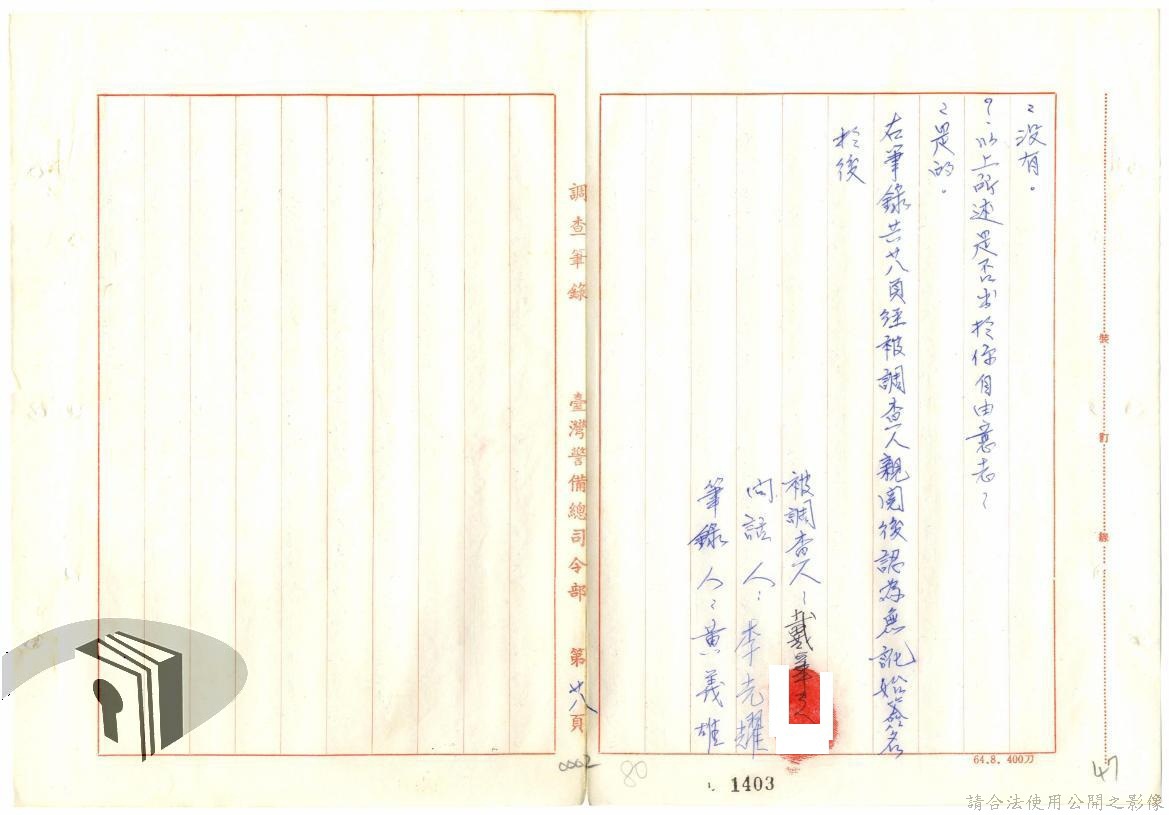 ：沒有。
？：以上所述是否出於你自由意志：
：是的。
右筆錄共廿八頁經被調查人親閱後認為無訛始簽名
於後
被調查人：戴華
問話人：李光耀
筆錄人：黃義雄
調查筆錄 臺灣警備總司令部 第廿八頁
裝 訂 線
64.8. 400刀
0002
80
1403
47
請合法使用公開之影像